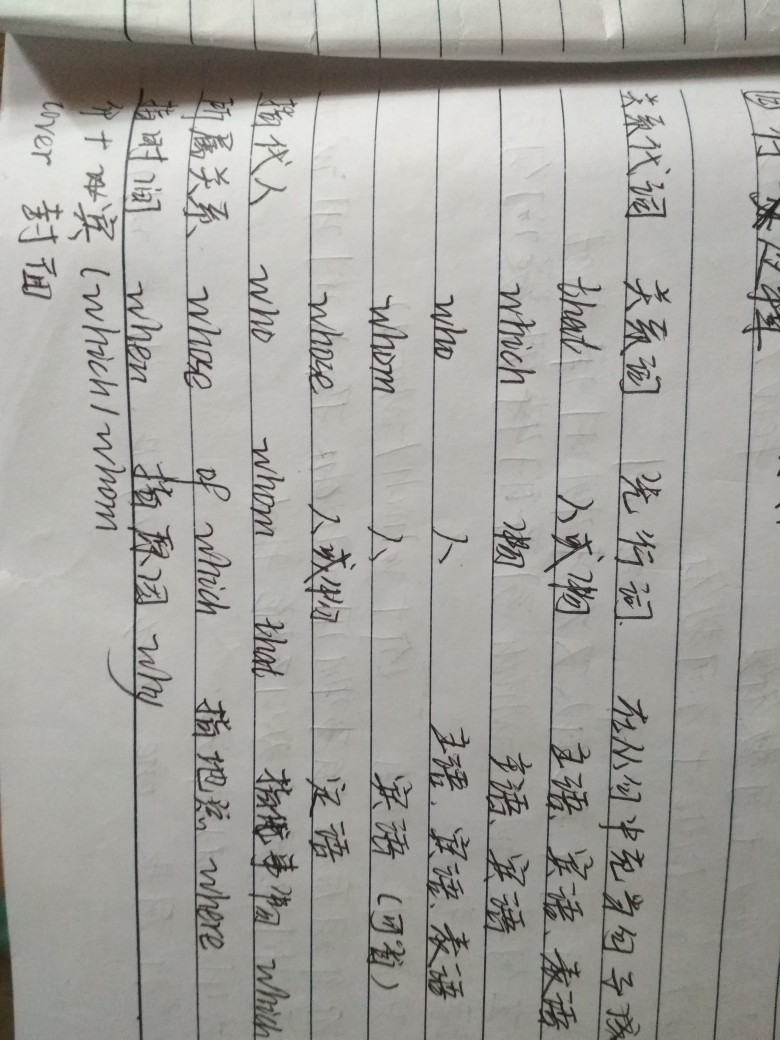 关系代词 关系词 先行词 在从句中充当句子成
that 人或物 主语、宾语、表语
which 物 主语、宾语
who 人 主语、宾语、表语
whom 人 宾语（可省）
whose 人或物 定语
指代人 who whom that 指事物 which
所属关系 whose of which 指地点 where
指时间 when 指原因 why
介+宾 (which/whom
cover 封面